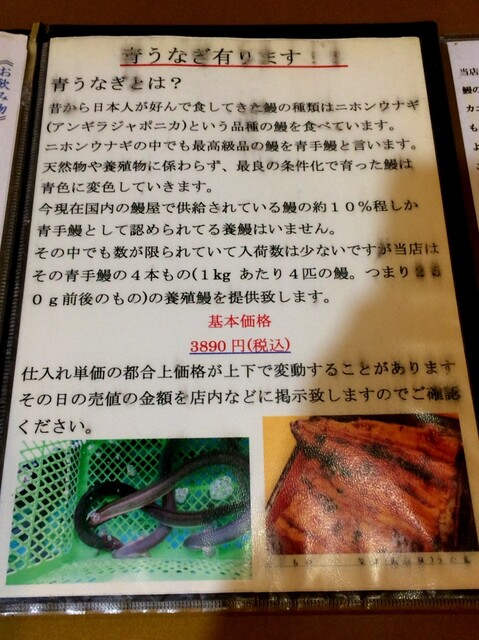 青うなぎ有ります！！
青うなぎとは？
昔から日本人が好んで食してきた鰻の種類はニホンウナギ
(アンギラジャポニカ)という品種の鰻を食べています。
ニホンウナギの中でも最高級品の鰻を青手鰻と言います。
天然物や養殖物に係わらず、最良の条件化で育った鰻は
青色に変色していきます。
今現在国内の鰻屋で供給されている鰻の約１０％程しか
青手鰻として認められてる養鰻はいません。
その中でも数が限られていて入荷数は少ないですが当店は
その青手鰻の４本もの(１kg あたり４匹の鰻。つまり２５
０ｇ前後のもの)の養殖鰻を提供致します。
基本価格
3890 円(税込)
仕入れ単価の都合上価格が上下で変動することがあります
その日の売値の金額を店内などに掲示致しますのでご確認
ください。
《お飲み物》
当店
鰻の
カニ
も
よ